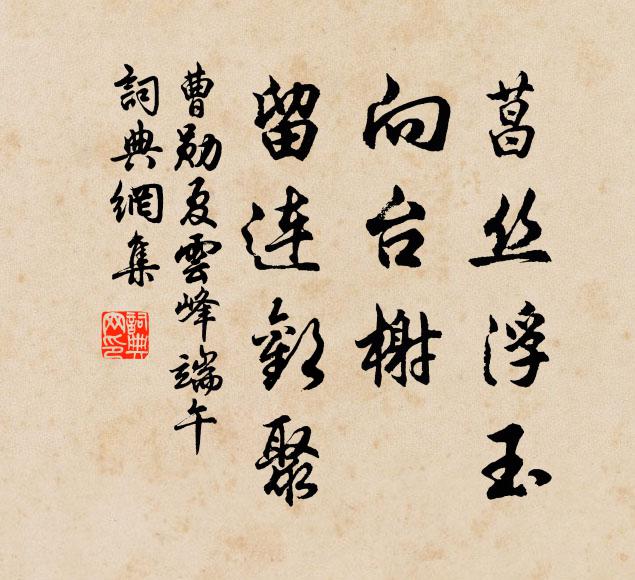 菖丝浮玉
向台榭
留连歡聚
曹勛夏雲峰端午
詞典網集
詞典网印